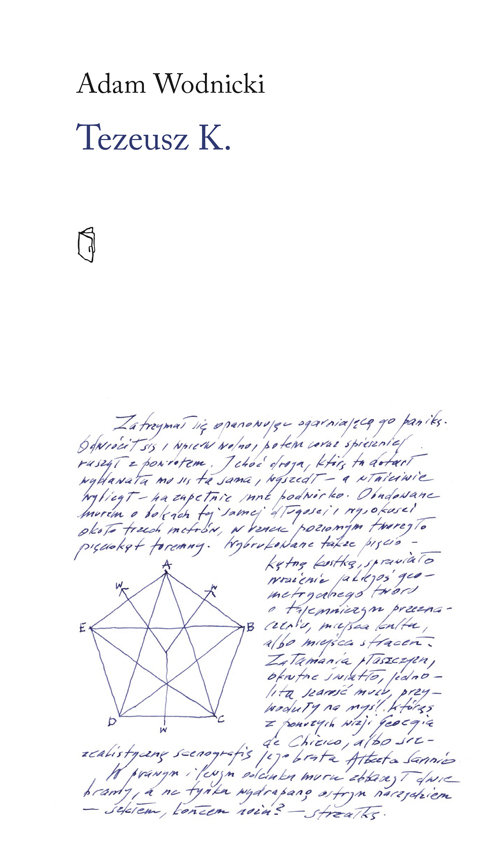 Adam Wodnicki
Tezeusz K.
Zatrzymał się opanowując ogarniającą go panikę.
Odwrócił się i wpierw wolno, potem coraz śpieszniej
ruszył z powrotem. I choć droga, którą tu dotarł
wydawała mu się ta sama, wyszedł – a właściwie
wybiegł – na zupełnie inne podwórko. Obudowane
murem o bokach tej samej długości i wysokości
około trzech metrów, w rzucie poziomym tworzyło
pięciokąt foremny. Wybrukowane także pięcio-
kątną kostką, sprawiało
wrażenie jakiegoś geo-
metrycznego tworu
o tajemniczym przezna-
czeniu, miejsca kultu,
albo miejsca straceń.
Załamania płaszczyzn,
okrutne światło, jedno-
lita szarość muru, przy-
wodziły na myśl którąś
z ponurych wizji Georgia
de Chirico, albo sur-
realistyczną scenografię jego brata Alberta Savinio
W prawym i lewym odcinku muru zobaczył dwie
bramy, a na tynku wydrapaną ostrym narzędziem
– szkłem, końcem noża? – strzałkę.
A
W
W
E
B
D
W
C